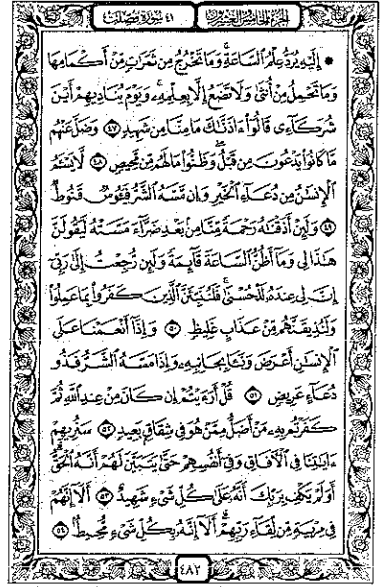 الجزء الخامس والعشرون ٤١ سورة فصلت
۞ إِلَيْهِ يُرَدُّ عِلْمُ السَّاعَةِ ۚ وَمَا تَخْرُجُ مِن ثَمَرَاتٍ مِّنْ أَكْمَامِهَا
وَمَا تَحْمِلُ مِنْ أُنثَىٰ وَلَا تَضَعُ إِلَّا بِعِلْمِهِ ۚ وَيَوْمَ يُنَادِيهِمْ أَيْنَ
شُرَكَاءِي قَالُوا ءَاذَنَّاكَ مَا مِنَّا مِن شَهِيدٍ ٤٧ وَضَلَّ عَنْهُم
مَّا كَانُوا يَدْعُونَ مِن قَبْلُ ۖ وَظَنُّوا مَا لَهُم مِّن مَّحِيصٍ ٤٨ لَّا يَسْـَٔمُ
الْإِنسَٰنُ مِن دُعَاءِ الْخَيْرِ وَإِن مَّسَّهُ الشَّرُّ فَيَـُٔوسٌ قَنُوطٌ
٤٩ وَلَئِنْ أَذَقْنَٰهُ رَحْمَةً مِّنَّا مِن بَعْدِ ضَرَّاءَ مَسَّتْهُ لَيَقُولَنَّ
هَٰذَا لِي وَمَا أَظُنُّ السَّاعَةَ قَائِمَةً وَلَئِن رُّجِعْتُ إِلَىٰ رَبِّي
إِنَّ لِي عِندَهُ لَلْحُسْنَىٰ ۚ فَلَنُنَبِّئَنَّ الَّذِينَ كَفَرُوا بِمَا عَمِلُوا
وَلَنُذِيقَنَّهُم مِّنْ عَذَابٍ غَلِيظٍ ٥٠ وَإِذَا أَنْعَمْنَا عَلَى
الْإِنسَٰنِ أَعْرَضَ وَنَـَٔا بِجَانِبِهِ وَإِذَا مَسَّهُ الشَّرُّ فَذُو
دُعَاءٍ عَرِيضٍ ٥١ قُلْ أَرَءَيْتُمْ إِن كَانَ مِنْ عِندِ اللَّهِ ثُمَّ
كَفَرْتُم بِهِ مَنْ أَضَلُّ مِمَّنْ هُوَ فِي شِقَاقٍ بَعِيدٍ ٥٢ سَنُرِيهِمْ
ءَايَٰتِنَا فِي الْـَٔافَاقِ وَفِي أَنفُسِهِمْ حَتَّىٰ يَتَبَيَّنَ لَهُمْ أَنَّهُ الْحَقُّ ۗ
أَوَلَمْ يَكْفِ بِرَبِّكَ أَنَّهُ عَلَىٰ كُلِّ شَيْءٍ شَهِيدٌ ٥٣ أَلَا إِنَّهُمْ
فِي مِرْيَةٍ مِّن لِّقَاءِ رَبِّهِمْ ۗ أَلَا إِنَّهُ بِكُلِّ شَيْءٍ مُّحِيطٌ ٥٤
٤٨٢